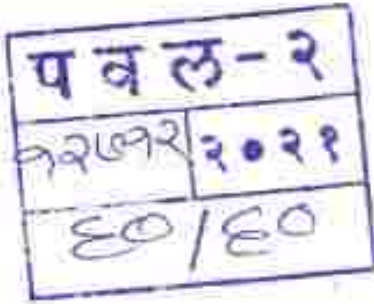 प व ल - २
१२७१२ २०२१
६०/६०